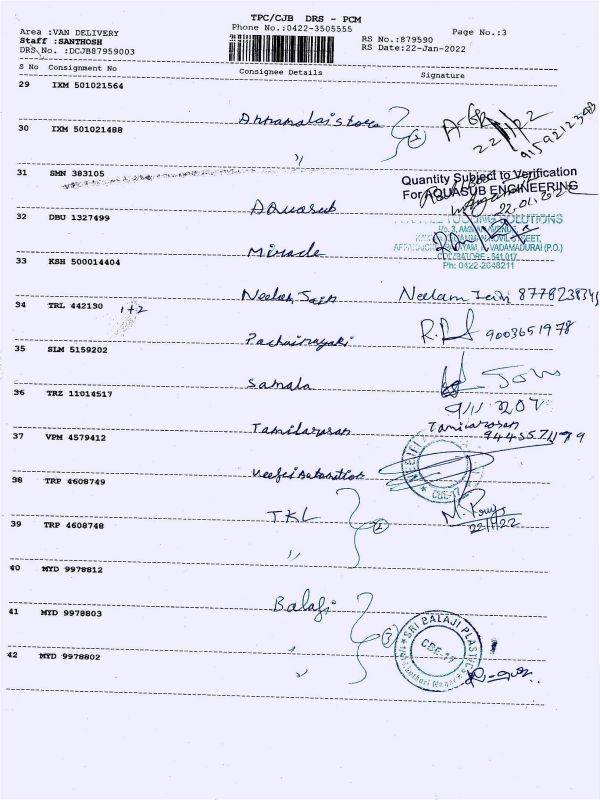 TPC/CJB DRS - PCM
Area :VAN DELIVERY
Phone No.:0422-3505555
Page No.:3
Staff :SANTHOSH
RS No.:879590
DRS No. :DCJB87959003
RS Date:22-Jan-2022
S No Consignment No Consignee Details Signature
29 IXM 501021564
Annamalai stores
2
22/1/22
9159212398
30 IXM 501021488
"
31 SMN 383105
Quantity Subject to Verification
For AQUASUB ENGINEERING
Aquasub
22.01.2022
32 DBU 1327499
TOOLING SOLUTIONS
COIMBATORE - 641 017
Ph: 0422-2648211
Miracle
33 KSH 500014404
Neelam Jain
Neelam Jain
34 TRL 442130 1+2
Pachainayaki
R.
9003651978
35 SLM 5159202
Samala
36 TRZ 11014517
Tamilarasan
Tamilarasan
37 VPM 4579412
CBE-17
38 TRP 4608749
TKL
2
22/1/22
39 TRP 4608748
"
40 MYD 9978812
Balaji
41 MYD 9978803
"
3
SRI BALAJI PLASTICS
CBE-17
42 MYD 9978802
"